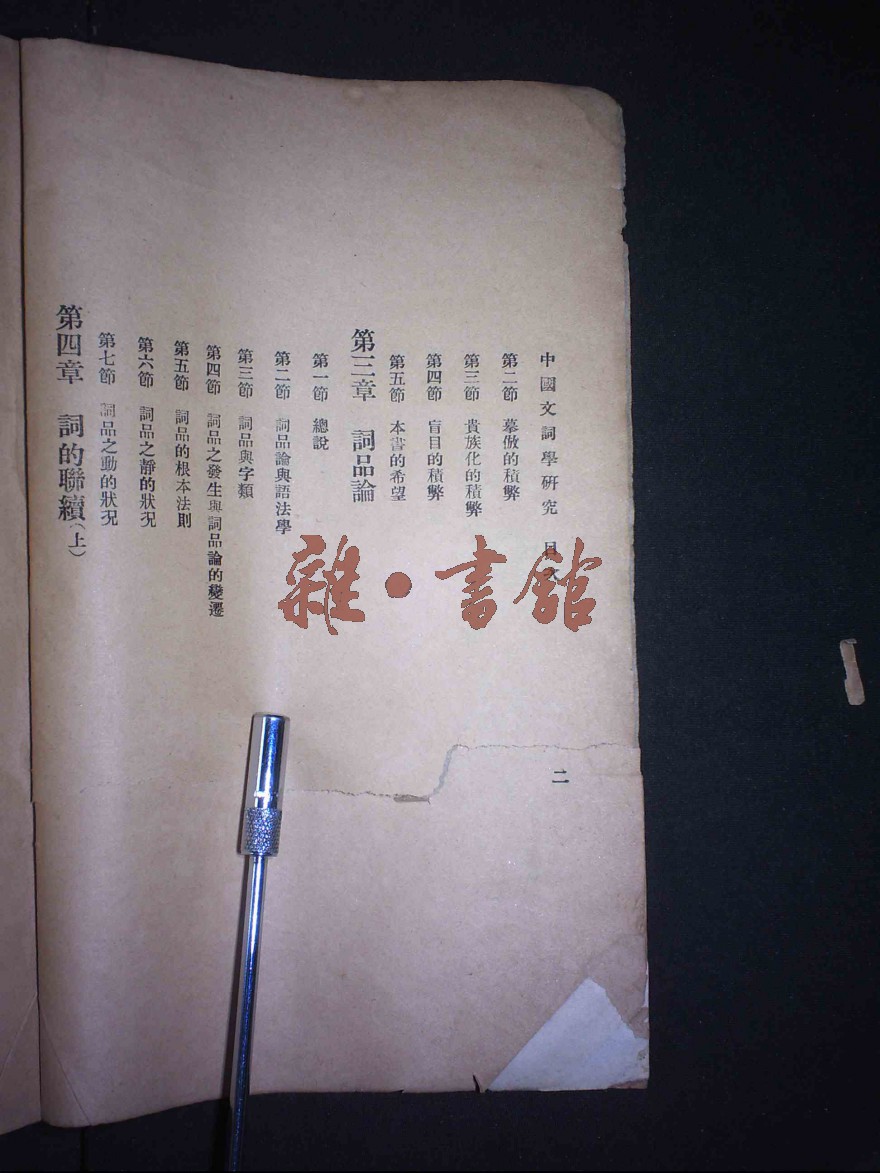 中國文詞學研究 目次
二
第二節 摹倣的積弊
第三節 貴族化的積弊
第四節 盲目的積弊
第五節 本書的希望
第三章 詞品論
第一節 總說
第二節 詞品論與語法學
第三節 詞品與字類
第四節 詞品之發生與詞品論的變遷
第五節 詞品的根本法則
第六節 詞品之靜的狀況
第七節 詞品之動的狀況
第四章 詞的聯續(上)
雜·書館